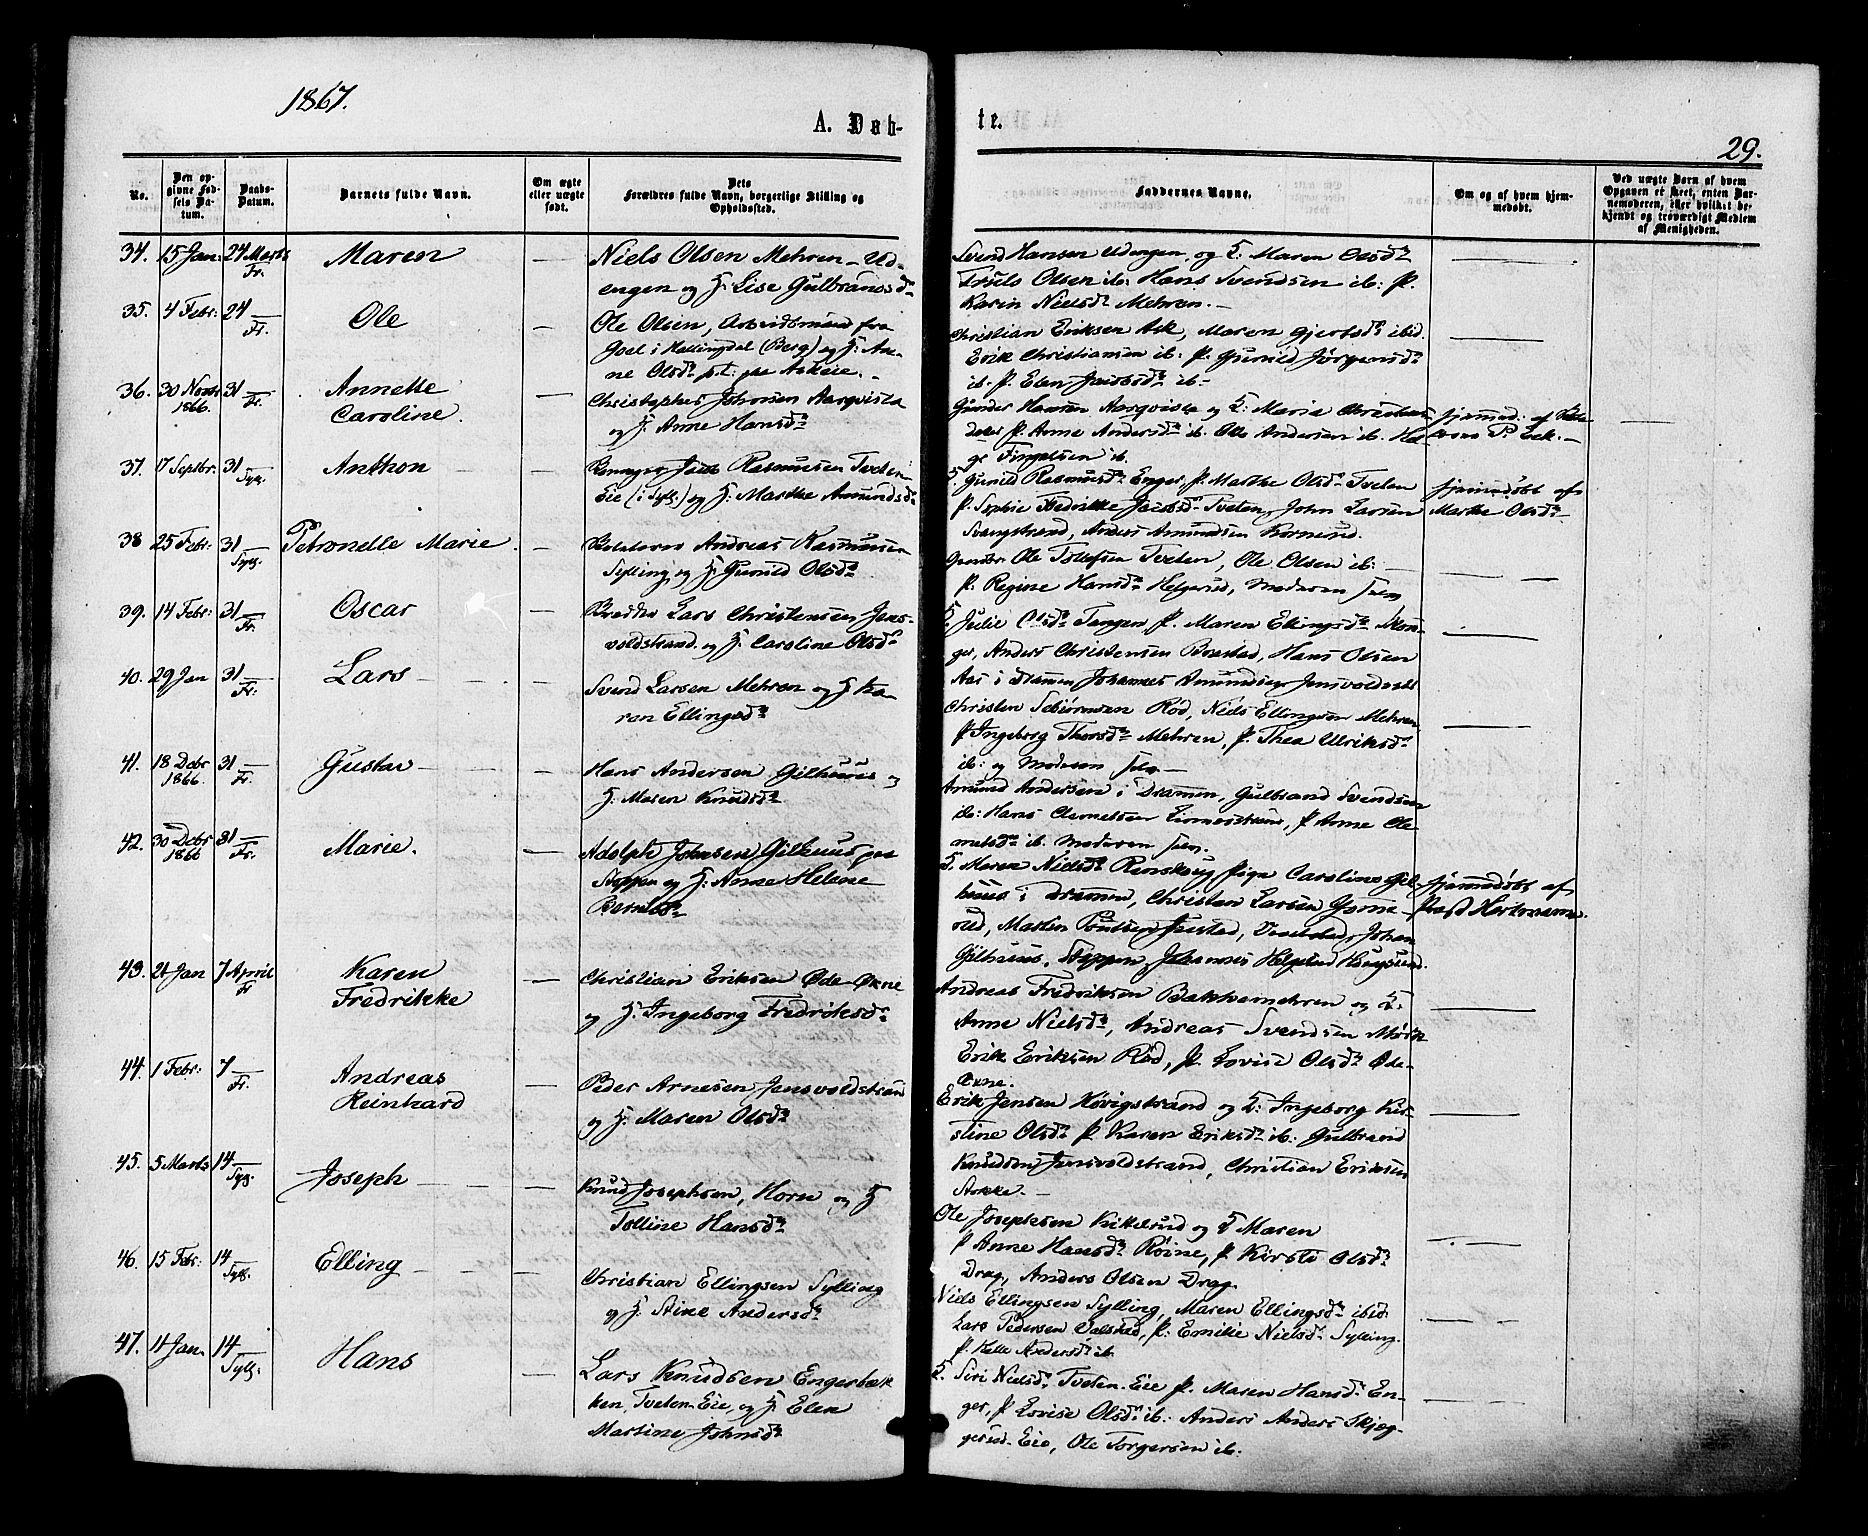 1867.
A. Døb-
te.
29.
No.
Den op-
givne Fød-
sels Da-
tum.
Daabs-
Datum.
Barnets fulde Navn.
Om ægte
eller uægte
født.
Dets
Forældres fulde Navn, borgerlige Stilling og
Opholdssted.
Faddernes Navne.
Om og af hvem hjem-
medøbt.
Ved uægte Børn af hvem
Opgaven er skeet, enten Bar-
nemoderen, eller hvilket be-
kjendt og troværdigt Medlem
af Menigheden.
34. 15 Jan: 24 Marts Fr. Maren
Niels Olsen Mehren - Ud-
engen og H. Lise Gulbransd.
Svend Hansen Udengen og H: Maren Olsd.
Truls Olsen ib: Hans Svendsen ib: P.
Karin Nielsd. Mehren. -
35. 4 Febr: 24 Fr. Ole
Ole Olsen, Arbeidsmand fra
Goel i Hallingdal (Berg) og H: An-
ne Olsd. p.t: paa Askeie. -
Christian Eriksen Ask, Maren Gjertsd. ibid.
Erik Christiansen ib: P. Gunild Jörgensd.
ib. P. Elen Jacobsd. ib -
36. 30 Novbr 1866. 31 Fr. Annette
Caroline.
Christopher Johnsen Aarqvisla
og H. Anne Hansd.
Gunder Hansen Aarqvisla og H: Maria Christians-
datter P. Anne Andersd. ib. Ole Andersen ib. Hel-
ge Fingalsen ib.
hjemmed: af
P. Eek. -
37. 17 Septbr. 31 Syll. Anthon
Jacob Rasmussen Tveten
Eie (i Syll.) og H: Marthe Amundsd.
H. Gunild Rasmusd. Enger, P. Marthe Olsd. Tveten
P. Sophie Fredrikke Jacobsd. Tveten, John Larsen
Svangstrand, Anders Amundsen Hornsrud.
hjemmedöbt af
Marthe Olsd. -
38 25 Febr: 31 Syll. Petronelle Marie.
Andreas Rasmussen
Sylling og H. Gunild Olsd.
Ole Tolefsen Tveten, Ole Olsen ib: -
P. Regine Hansd. Helgerud, Moderen selv
39. 14 Febr: 31 Fr. Oscar
Lars Christensen Jens-
voldstrand. og H. Caroline Olsd.
H. Julie Olsd. Tangen P. Maren Ellingsd. Skon-
ger, Anders Christensen Brastad, Hans Olsen
Aas i Dramen Johannes Amundsen Jensvoldvald
40. 29 Jan 31 Fr: Lars
Svend Larsen Mehren og H Ka-
ren Ellingsd.
Christen Rød, Niels Ellingsen Mehren
P. Ingeborg Thorsd. Mehren, P. Thea Ulriksd.
ib: og Moderen selv -
41. 18 Debr 1866 31 Fr. Gustav
Hans Andersen Gilhuus og
H. Maren Knudsd.
Amund Andersen i Dramen, Gulbrand Svendsen
ib: Hans Clemetsen Linnesstrand, P Anne Cle-
metsd. ib. Moderen selv.
42. 30 Debr 1866 31 Fr. Marie.
Adolph Johnsen Gilhuus paa
Stoppen og H: Anne Helene
Berntsd.
H. Maren Nielsd. Renskaug Pige Caroline Gil-
huus i Dramen, Christen Larsen Gjerne-
rud, Morten Poulsen Justad, Johan
Gilhuus, Stoppen, Johannes Helgerud Haugerud.
hjemmedöbt af
Præst Hartmann.
43. 21 Jan 7 April Fr Karen
Fredrikke
Christian Eriksen Øde-Økne
og H. Ingeborg Fredriksd.
Andreas Fredriksen Bakkemehren og H:
Anne Nielsd., Andreas Svendsen Mørk
Erik Eriksen Röd, P. Lovise Olsd. Øde-
Økne.
44. 1 Febr: 7 Fr. Andreas
Reinhard
Peder Arnesen Jensvoldstrand
og H. Maren Olsd.
Erik Jensen Høvigstrand og H: Ingeborg Kir-
stine Olsd. P. Karen Eriksd. ib: Gulbrand
Knudsen Jensvoldstrand, Christian Eriksen
Stokke. -
45. 5 Marts 14 Syll. Joseph
Knud Josephsen, Horn og H
Tolline Hansd.
Ole Josephsen Kikkerud og H Maren
P Anne Hansd. Röine, P. Kirsti Olsd.
Drag, Anders Olsen Drag
46. 15 Febr: 14 Syll. Elling
Christian Ellingsen Sylling
og H. Stine Andersd.
Niels Ellingsen Sylling, Maren Ellingsd. ibid.
Lars Pedersen Valstad, P: Emilie Nielsd. Sylling.
P. Helle Andersd. ib.
47. 11 Jan. 14 Syll. Hans
Lars Knudsen Engerbæk-
ken, Tveten Eie, og H. Elen
Martine Johnsd.
H. Siri Nielsd. Tveten Eie P. Maren Hansd. En-
ger, P Lovise Olsd. ib: Anders Anders Skjeg-
gerud Eie, Ole Torgersen ib.